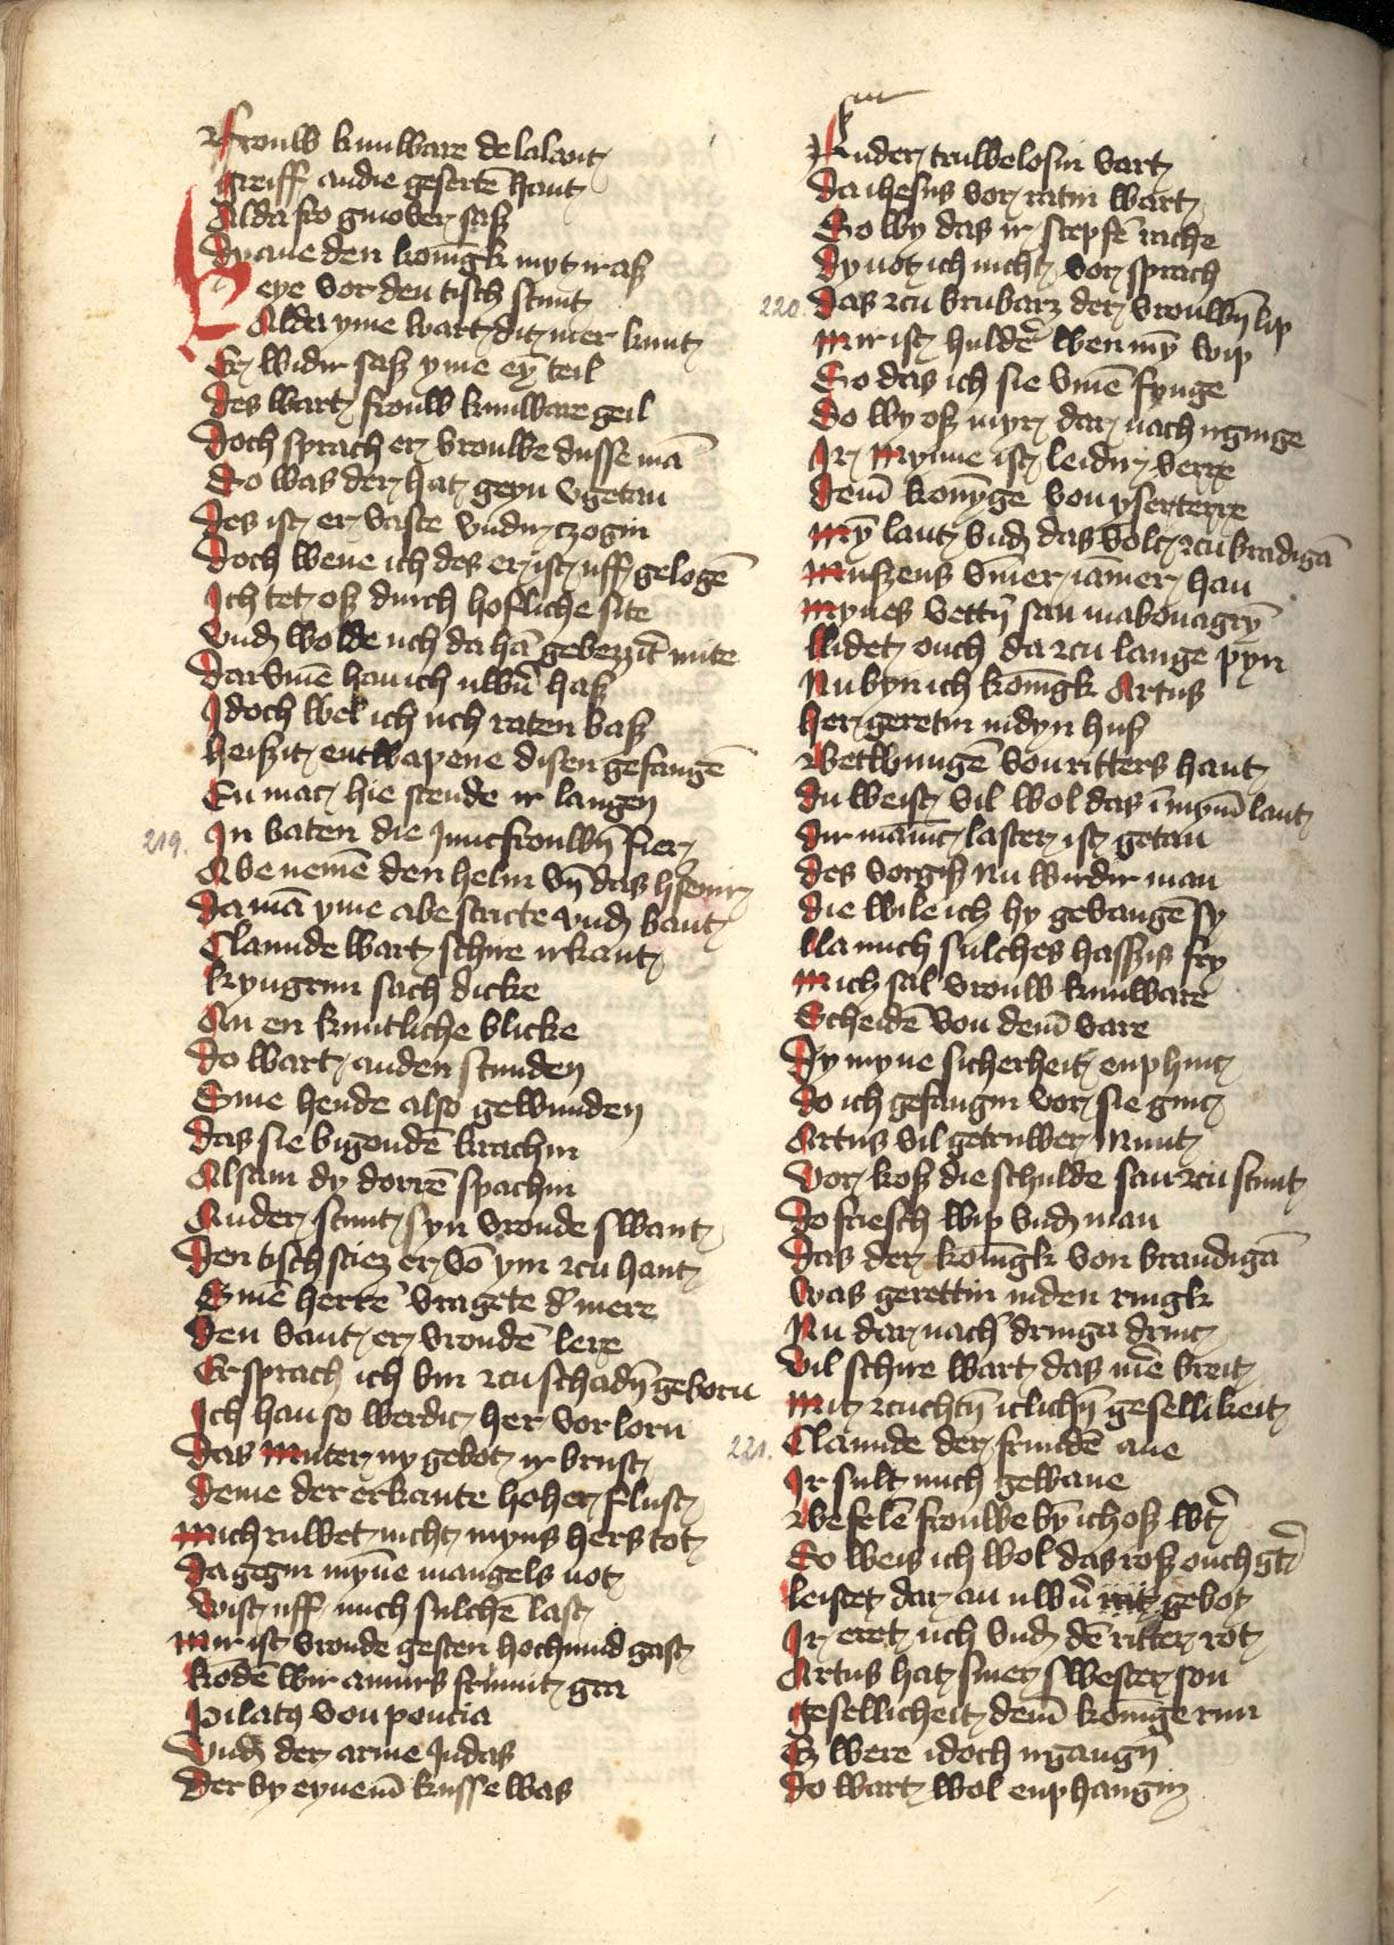 Frouw kunware de lalant
greiff an die geserte hant
Alda fro ginover saß
Dy ane den konīgk myt ir aß
Keye vor den tisch stunt
Alda yme wart dit mer kunt
Er widir saß yme eȳ teil
Des wart frouw kunware geil
Doch sprach er vrouwe dusse mā
So was der hat geyn vgetan
Des ist er vaste vndir tzogin
Doch wene ich des er ist uff gelogē
Ich tet oß durch hofliche site
Vnd wolde uch da hā gebezzīt mite
Dar vmē han ich uwn̄ haß
Idoch wel ich uch raten baß
heiszit entwapene disen gefangē
En mac hie stende ir langen
219. In baten die Juncfrouwn̄ fier
Abe nemē den helm vn̄ das hsenir
Da mā yme abe stricte vnd bant
Clamide wart schire irkant
kyngrun sach dicke
An en kuntliche blicke
Do wart an den stunden
Sine hende also gewunden
Das sie bigondē krachin
Alsam dy dorrē spachin
An der stunt syn vronde swant
Den tisch stiez er vō ym zcu hant
Sinē herrē vragete d' mere
Den vant er vrondē lere
Er sprach ich bin zcu schadn̄ geborn
Ich han so werdic her vorlorn
Das Muter ny gebot ir brust
Deme der erkante hoher flust
Mich ruwet nicht myns hers tot
Da gegin myn̄e mangels not
Wist uff mich sulchē last
Mir ist vronde gesten hochmud gast
kōdē wir amurs frumit gra
Pilatꝰ von poncia
Vnd der arme Judas
Der by eynem̄ kusse was
An der truwelosin vart
Da ihesus vor ratin wart
So wy das ir scepfē rache
Dy not ich nicht vor sprach
220. Das zcu brubarz der vrouwn̄ lip
Mir ist huldē wen mȳ wip
So das ich sie vmē fynge
So wy oß myr dar nach irginge
Ir Mynne ist leidir verre
Dem̄ konȳge von yserterre
Mȳ lant vnd das volc zcu bradigā
Muszens vmer iamer han
Mynes vettn̄ san mabonagrȳ
llidet ouch da zcu lange pyn
Nu byn ich konīgk Artus
her geretin in dyn hus
Wetwungē von ritters hant
Du weist vil wol das ī mynē lant
Dir manic laster ist getan
Des vorgiß nu wirdir man
Die wile ich hy gevangē sy
lla mich sulches haszis fry
Mich sal vrouw kunware
Scheidē von dem̄ vare
Dy myne sicherheit enphinc
Do ich gefangin vor sie ginc
Artus vil getruwer Munt
Vor koß die schulde san zcu stunt
Do friesch wip vnd man
Das der konīgk von brandigā
Was gerettin in den ringk
Nu dar nach dringa drinc
Vil schire wart das mē breit
Mit zcuchtn̄ iclichn̄ gesellikeit
221. Clamide der frundē ane
Ir sult mich gewane
Wefelē frouwe bȳ ich oß wt̄
So weis ich wol das roß ouch gt̄
leistet dar an uwn̄ gebot
Ir eret uch vnd dē ritter rot
Artus hat siner swester son
gesellicheit dem̄ konīge run
Eß were idoch irgangn̄
Do wart wol enphangin